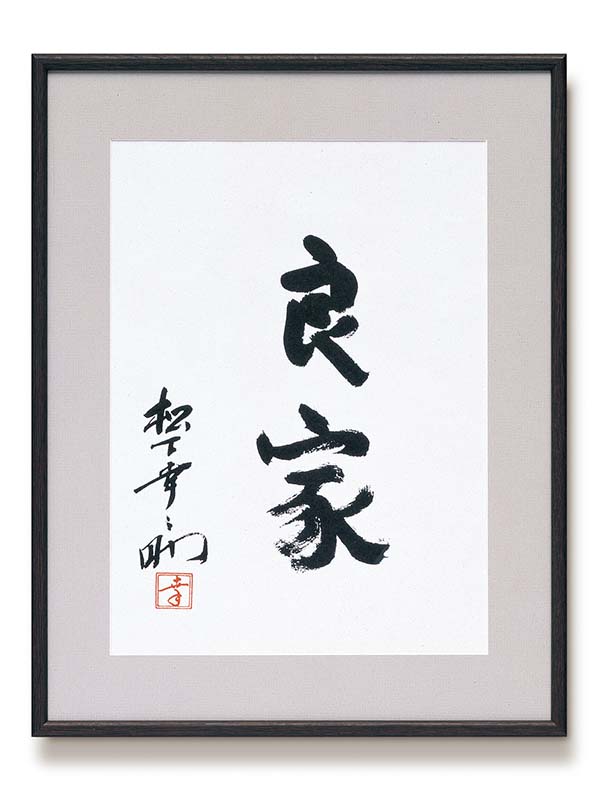 良家
松下幸之助
幸